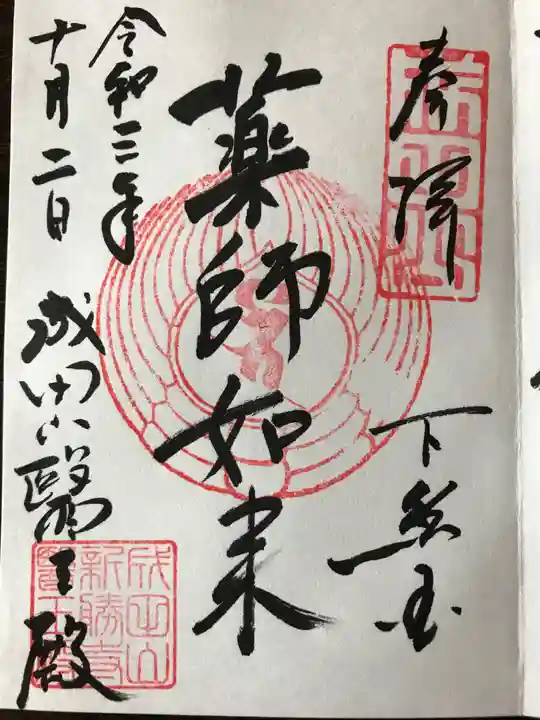 奉拝
下総国
薬師如来
令和三年
十月二日
成田山醫王殿
成田山
新勝寺
醫王殿